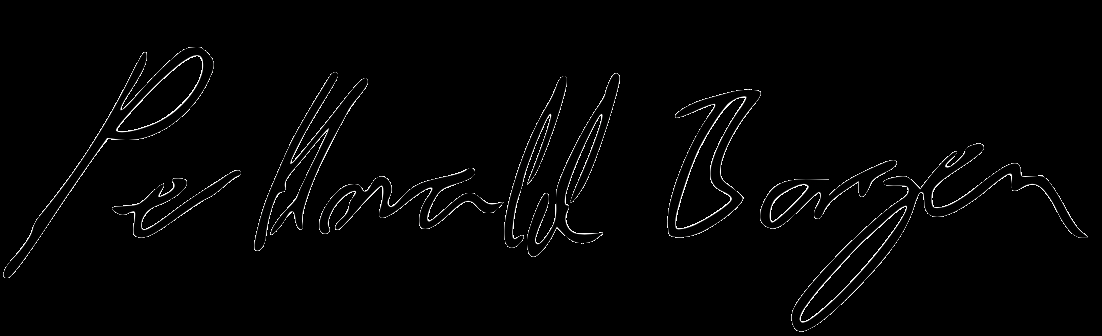 Per Harald Borgen